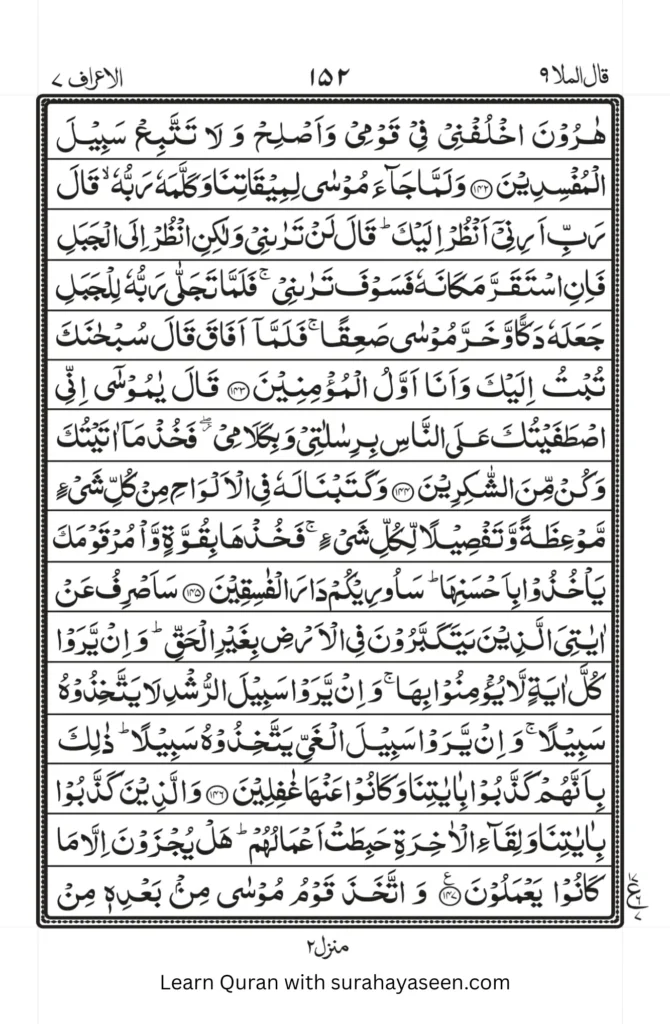 قال الملا ۹ ۱۵۲ الاعراف ۷
هٰرُوۡنَ اخۡلُفۡنِىۡ فِىۡ قَوۡمِىۡ وَاَصۡلِحۡ وَ لَا تَتَّبِعۡ سَبِيۡلَ
الۡمُفۡسِدِيۡنَ ﴿۱۴۲﴾ وَلَمَّا جَآءَ مُوۡسٰى لِمِيۡقَاتِنَا وَكَلَّمَهٗ رَبُّهٗ ۙ قَالَ
رَبِّ اَرِنِىۡۤ اَنۡظُرۡ اِلَيۡكَ ؕ قَالَ لَنۡ تَرٰٮنِىۡ وَلٰكِنِ انْظُرۡ اِلَى الۡجَـبَلِ
فَاِنِ اسۡتَقَرَّ مَكَانَهٗ فَسَوۡفَ تَرٰٮنِىۡ ۚ فَلَمَّا تَجَلّٰى رَبُّهٗ لِلۡجَبَلِ
جَعَلَهٗ دَكًّا وَّخَرَّ مُوۡسٰى صَعِقًا ۚ فَلَمَّاۤ اَفَاقَ قَالَ سُبۡحٰنَكَ
تُبۡتُ اِلَيۡكَ وَاَنَا اَوَّلُ الۡمُؤۡمِنِيۡنَ ﴿۱۴۳﴾ قَالَ يٰمُوۡسٰٓى اِنِّى
اصۡطَفَيۡتُكَ عَلَى النَّاسِ بِرِسٰلٰتِىۡ وَ بِكَلَامِىۡ ۖ فَخُذۡ مَاۤ اٰتَيۡتُكَ
وَكُنۡ مِّنَ الشّٰكِرِيۡنَ ﴿۱۴۴﴾ وَكَتَبۡنَا لَهٗ فِى الۡاَلۡوَاحِ مِنۡ كُلِّ شَىۡءٍ
مَّوۡعِظَةً وَّتَفۡصِيۡلًا لِّـكُلِّ شَىۡءٍ ۚ فَخُذۡهَا بِقُوَّةٍ وَّاۡمُرۡ قَوۡمَكَ
يَاۡخُذُوۡا بِاَحۡسَنِهَا ؕ سَاُورِيۡكُمۡ دَارَ الۡفٰسِقِيۡنَ ﴿۱۴۵﴾ سَاَصۡرِفُ عَنۡ
اٰيٰتِىَ الَّذِيۡنَ يَتَكَبَّرُوۡنَ فِى الۡاَرۡضِ بِغَيۡرِ الۡحَـقِّ ؕ وَاِنۡ يَّرَوۡا
كُلَّ اٰيَةٍ لَّا يُؤۡمِنُوۡا بِهَا ۚ وَاِنۡ يَّرَوۡا سَبِيۡلَ الرُّشۡدِ لَا يَتَّخِذُوۡهُ
سَبِيۡلًا ۚ وَّاِنۡ يَّرَوۡا سَبِيۡلَ الۡغَىِّ يَتَّخِذُوۡهُ سَبِيۡلًا ؕ ذٰلِكَ
بِاَنَّهُمۡ كَذَّبُوۡا بِاٰيٰتِنَا وَكَانُوۡا عَنۡهَا غٰفِلِيۡنَ ﴿۱۴۶﴾ وَالَّذِيۡنَ كَذَّبُوۡا
بِاٰيٰتِنَا وَلِقَآءِ الۡاٰخِرَةِ حَبِطَتۡ اَعۡمَالُهُمۡ ؕ هَلۡ يُجۡزَوۡنَ اِلَّا مَا
كَانُوۡا يَعۡمَلُوۡنَ ﴿۱۴۷﴾ ع وَ اتَّخَذَ قَوۡمُ مُوۡسٰى مِنۡۢ بَعۡدِهٖ مِنۡ
۷ ع ۶ ۷
منزل ۲
Learn Quran with surahayaseen.com